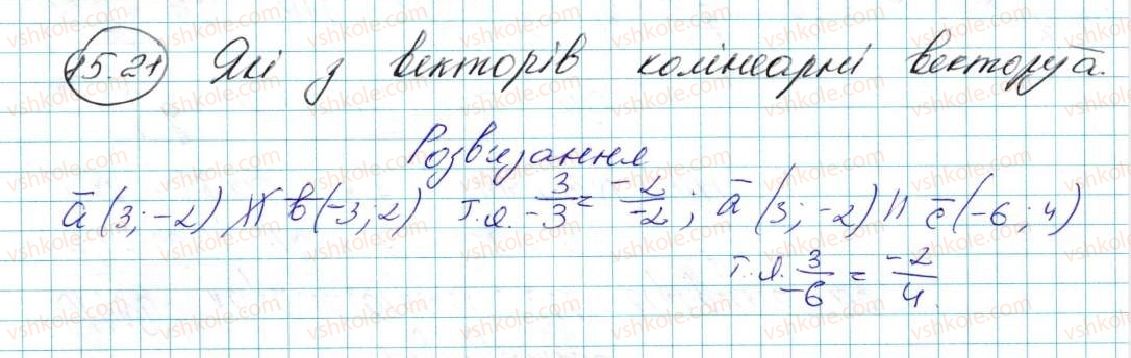 15.21 Які з векторів колінеарні вектору a̅.
Розв'язання
a̅ (3; -2) ∦ b̅ (-3; 2) т.я. 3/-3 = -2/-2; a̅ (3; -2) || c̅ (-6; 4)
т.я. 3/-6 = -2/4.